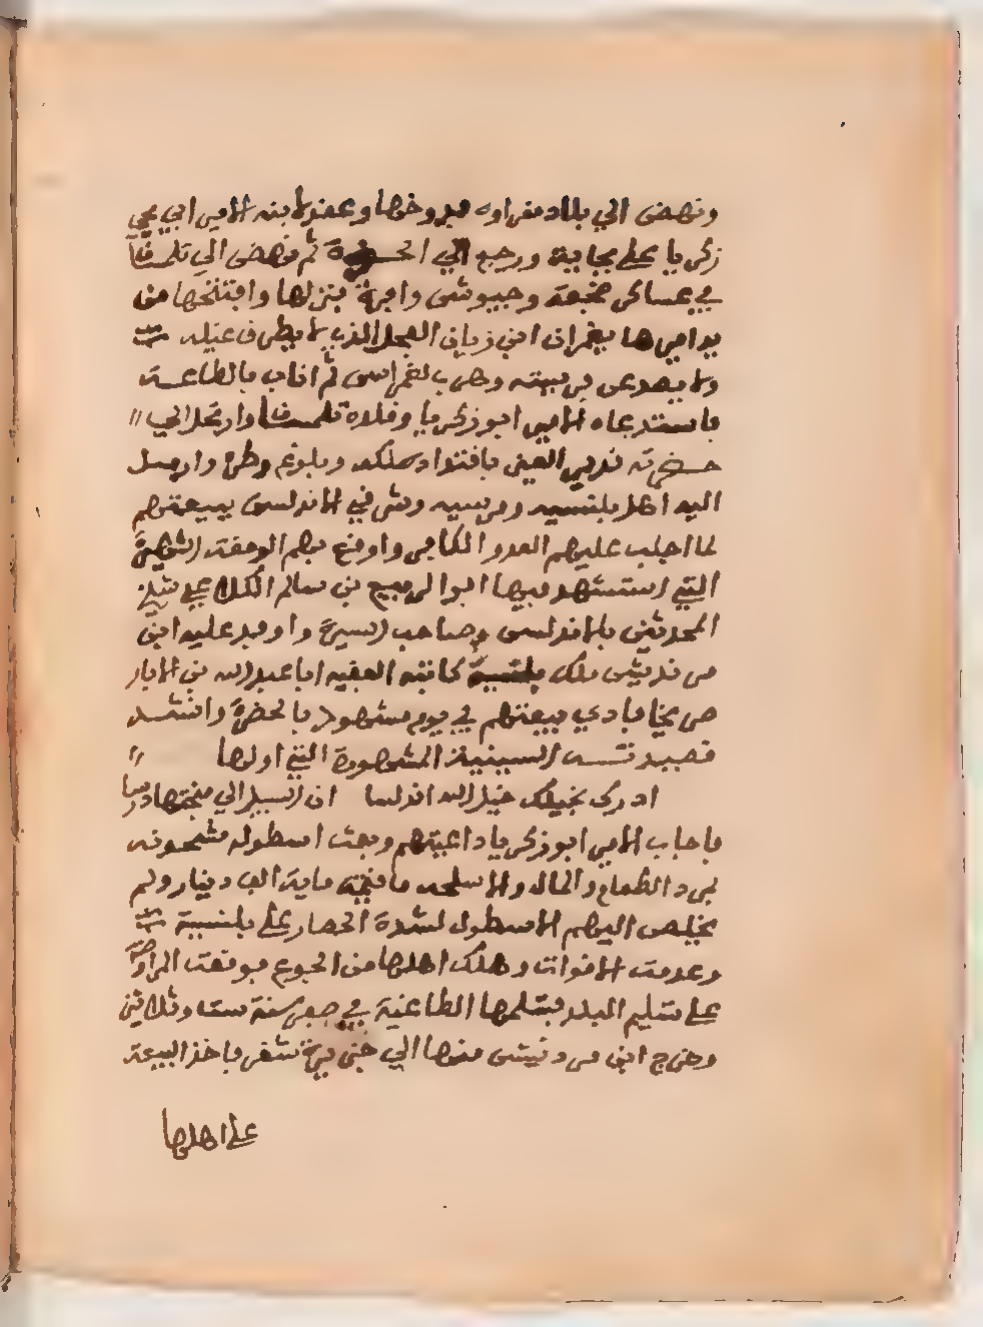 ونهض الي بلاد مغراوه فدوخها وعقد لابنه الامير ابي يحي
زكريا علي بجاية ورجع الي الحضرة ثم نهض الي تلمسان
في عساكر ضخمة وجيوش وافرة فنزلها وافتتحها من
يد اميرها يغمراسن ابن زيان الفحل الذي لا يطرق غيله
ولا يصدعن فريسته وهرب يغمراسن ثم اناب بالطاعة
فاستدعاه الامير ابو زكريا وقلده تلمسان وارتحل الي
حضرته قرير العين بامتداد ملكه وبلوغ وطره وارسل
اليه اهل بلنسيه ومرسيه وشرقي الاندلس ببيعتهم
لما اجلب عليهم العدو الكافر واوقع بهم الوقعة الشهيرة
التي استشهد فيها ابو الربيع بن سالم الكلاعي شيخ
المحدثين بالاندلس وصاحب السيرة واوفد عليه ابن
مرذنيش ملك بلنسية كاتبه الفقيه ابا عبد الله بن الابار
صريخا فادي بيعتهم في يوم مشهود بالحضرة وانشد
قصيدته السينية المشهورة التي اولها
ادرك بخيلك خيل الله اندلسا ان السبيل الي منجتها درسا
فاجاب الامير ابو زكريا داعيتهم وبعث اسطوله مشحونه
بمدد الطعام والمال والاسلحه ما قيمته ماية الف دينار ولم
يخلص اليهم الاسطول لشدة الحصار علي بلنسية
وعدمت الاقوات وهلك اهلها من الجوع فوقعت المراوضة
علي تسليم البلد فتسلمها الطاغية في صفر سنة ست وثلاثين
وخرج ابن مردنيش منها الي جزيرة شقر فاخذ البيعة
علي اهلها